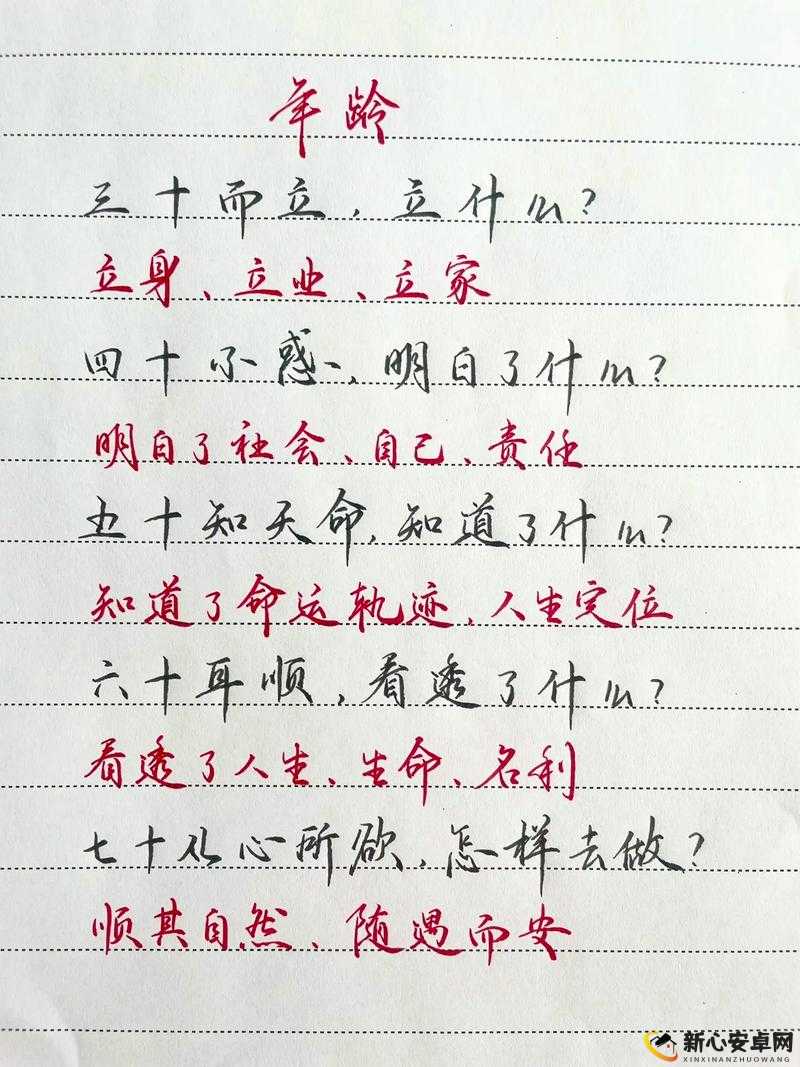 年龄
三十而立，立什么？
立身、立业、立家
四十不惑，明白了什么？
明白了社会、自己、责任
五十知天命，知道了什么？
知道了命运轨迹，人生定位
六十耳顺，看透了什么？
看透了人生、生命、名利
七十从心所欲，怎样去做？
顺其自然、随遇而安
新心安卓网
XINXINANZHUOWANG